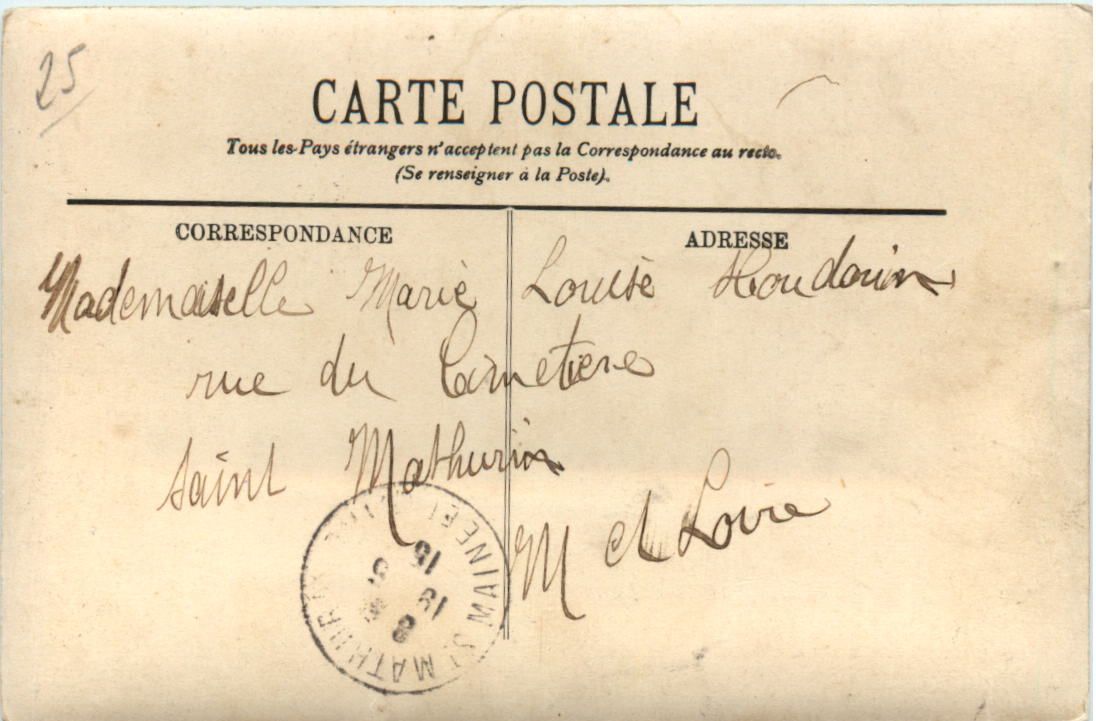 25
CARTE POSTALE
Tous les Pays étrangers n'acceptent pas la Correspondance au recto.
(Se renseigner à la Poste).
CORRESPONDANCE
ADRESSE
Mademoiselle Marie Louise Houdouin
rue du Cimetiere
Saint Mathurin
M et Loire
ST MATHURIN MAINE ET LOIRE
15